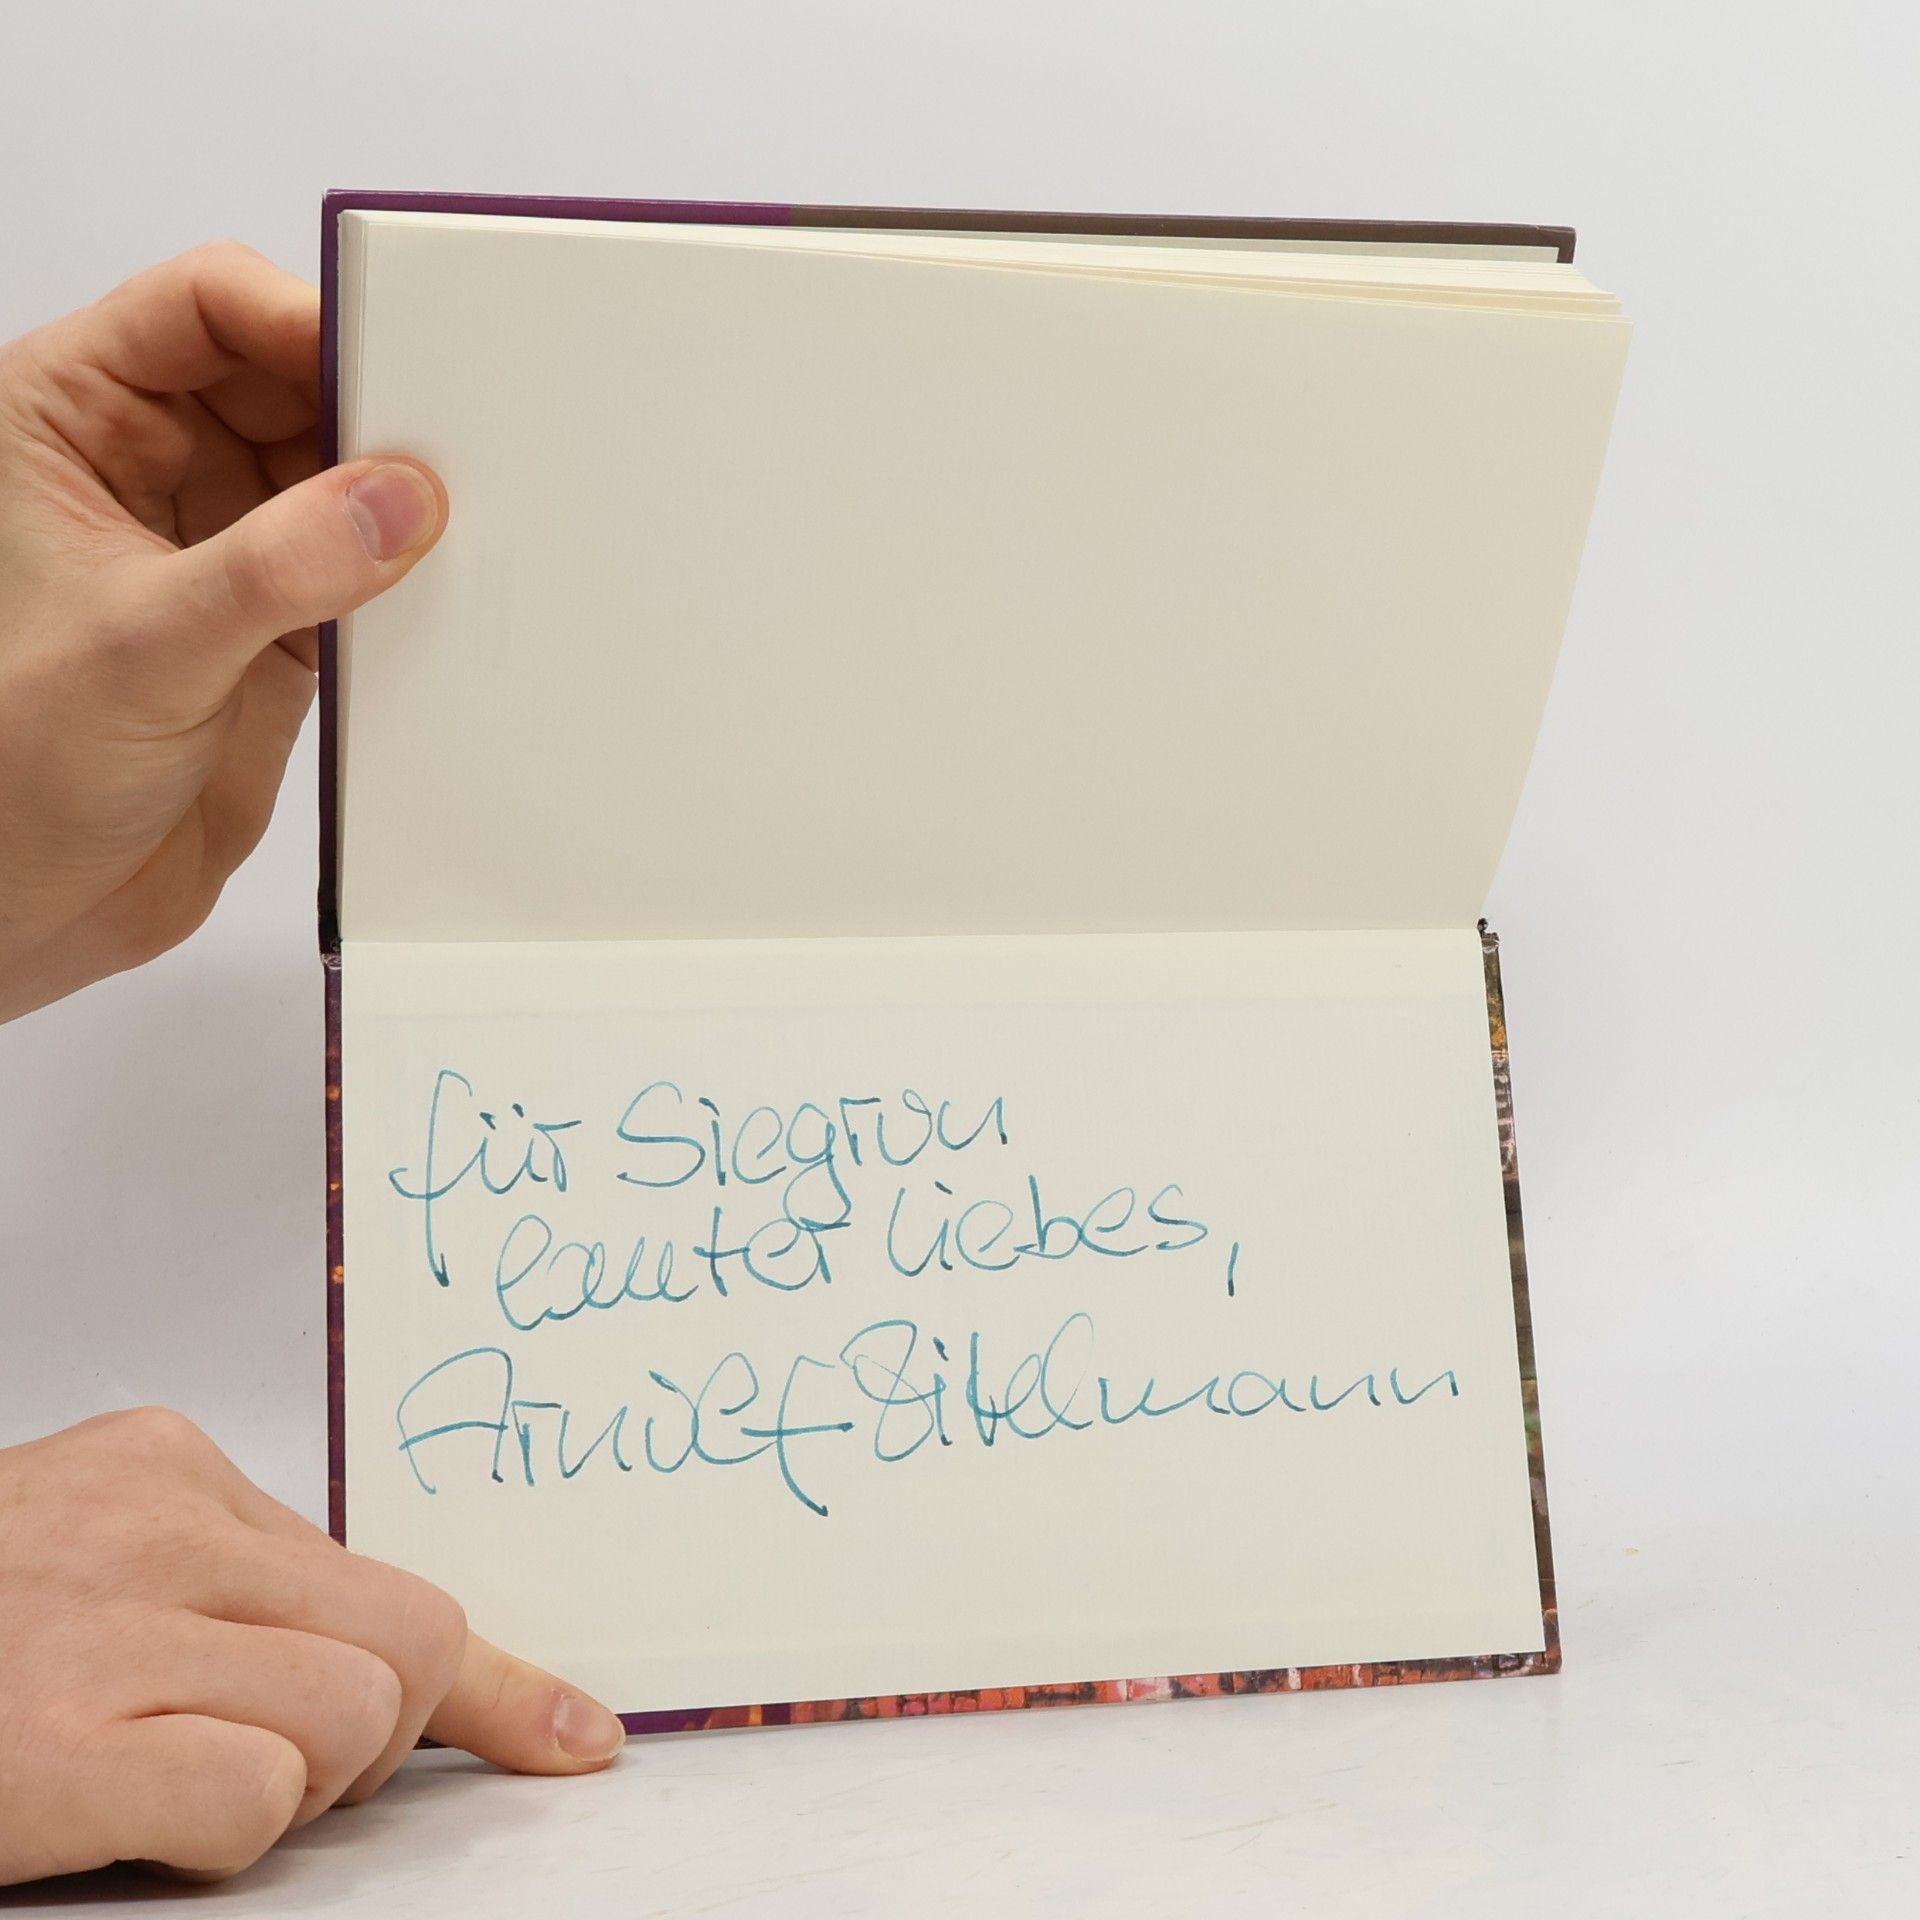 für Siegrun
lauter liebes,
Arnulf Zitelmann